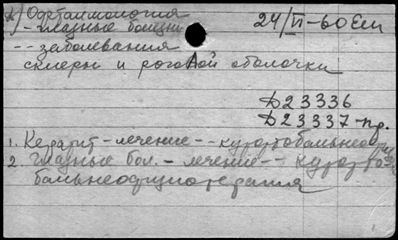 Офтальмология 24/VI-60 Ем
- глазные болезни
- - заболевания
склеры и роговой оболочки
Д23336
Д23337-пр.
1. Кератит - лечение - - курортобальнео
2. Глазные бол. - лечение - - курорто
бальнеофизиотерапия